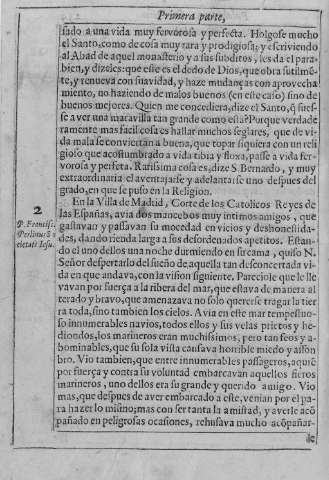 Primera parte,
sado a una vida muy fervorosa y perfecta. Holgose mucho
el Santo, como de cosa muy rara y prodigiosa; y escriviendo
al Abad de aquel monasterio y a sus subditos, les da el para-
bien, y dizeles: que este es el dedo de Dios, que obra sutilmē-
te, y renueva con suavidad, y haze mudanças con aprovecha
miento, no haziendo de malos buenos (en este caso) sino de
buenos mejores. Quien me concediera, dize el Santo, q̄ fues-
se a ver una maravilla tan grande como esta? Porque verdade
ramente mas facil cosa es hallar muchos seglares, que de vi-
da mala se conviertan a buena, que topar siquiera con un reli
gioso que acostumbrado a vida tibia y floxa, passe a vida fer-
vorosa y perfeta. Rarissima cosa es, dize S. Bernardo, y muy
extraordinaria el aventajarse y adelantarse uno despues del
grado, en que se puso en la Religion.
2
En la Villa de Madrid, Corte de los Catolicos Reyes de
las Españas, avia dos mancebos muy intimos amigos, que
gastavan y passavan su mocedad en vicios y deshonestida-
des, dando rienda larga a sus desordenados apetitos. Estan-
do el uno dellos una noche durmiendo en su cama, quiso N.
Señor despertarlo del sueño de aquella tan desconcertada vi
da en que andava, con la vision siguiente. Pareciole que le lle
vavan por fuerça a la ribera del mar, que estava de manera al
terado y bravo, que amenazava no solo querer se tragar la tier
ra toda, sino tambien los cielos. Avia en este mar tempestuo-
so innumerables navios, todos ellos y sus velas prietos y he-
diondos, los marineros eran muchissimos, pero tan feos y a-
bominables, que su sola vista causava horrible miedo y assom
bro. Vio tambien, que entre innumerables passageros, a quiē
por fuerça y contra su voluntad embarcavan aquellos fieros
marineros, uno dellos era su grande y querido amigo. Vio
mas, que despues de aver embarcado a este, venian por el pa-
ra hazer lo mismo; mas con ser tanta la amistad, y averle acō
pañado en peligrosas ocasiones, rehusava mucho acōpañar-
le